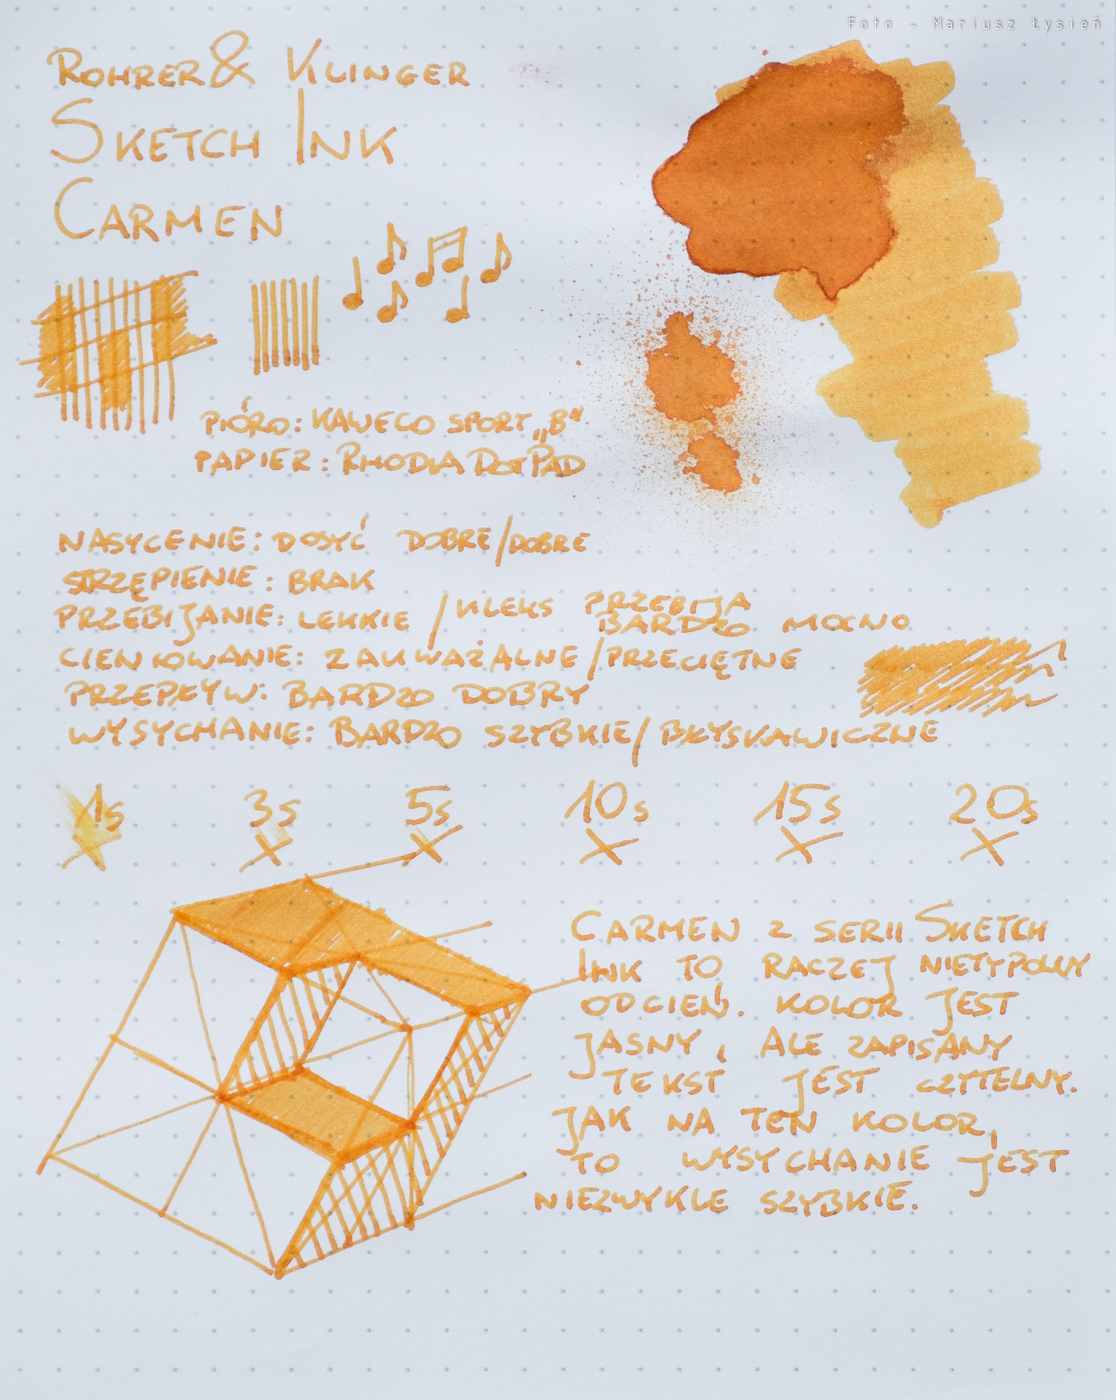 Foto - Mariusz Łysień
ROHRER & KLINGER
SKETCH INK
CARMEN
PIÓRO: KAWECO SPORT „B"
PAPIER: RHODIA DOTPAD
NASYCENIE: DOSYĆ DOBRE/DOBRE
STRZĘPIENIE: BRAK
PRZEBIJANIE: LEKKIE / KLEKS PRZEBIJA
BARDZO MOCNO
CIENIOWANIE: ZAUWAŻALNE/PRZECIĘTNE
PRZEPŁYW: BARDZO DOBRY
WYSYCHANIE: BARDZO SZYBKIE/ BŁYSKAWICZNE
1s 3s 5s 10s 15s 20s
CARMEN Z SERII SKETCH
INK TO RACZEJ NIETYPOWY
ODCIEŃ. KOLOR JEST
JASNY, ALE ZAPISANY
TEKST JEST CZYTELNY.
JAK NA TEN KOLOR,
TO WYSYCHANIE JEST
NIEZWYKLE SZYBKIE.